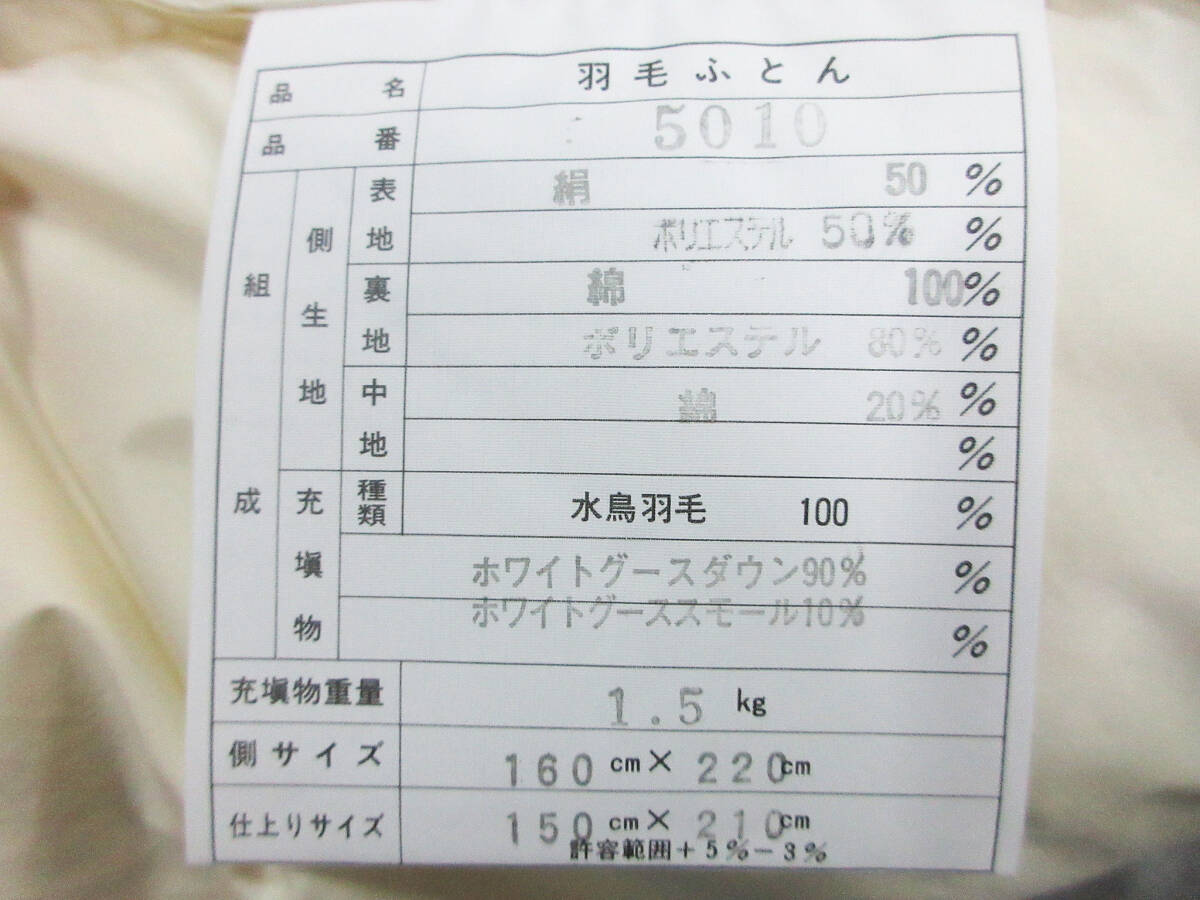 品名 羽毛ふとん
品番 5010
組成 側生地 表地 絹 50 %
ポリエステル 50% %
裏地 綿 100%
ポリエステル 80% %
中地 綿 20% %
%
充塡物 種類 水鳥羽毛 100 %
ホワイトグースダウン90% %
ホワイトグーススモール10%
%
充塡物重量 1.5 kg
側サイズ 160 cm × 220 cm
仕上りサイズ 150 cm × 210 cm
許容範囲+5%−3%